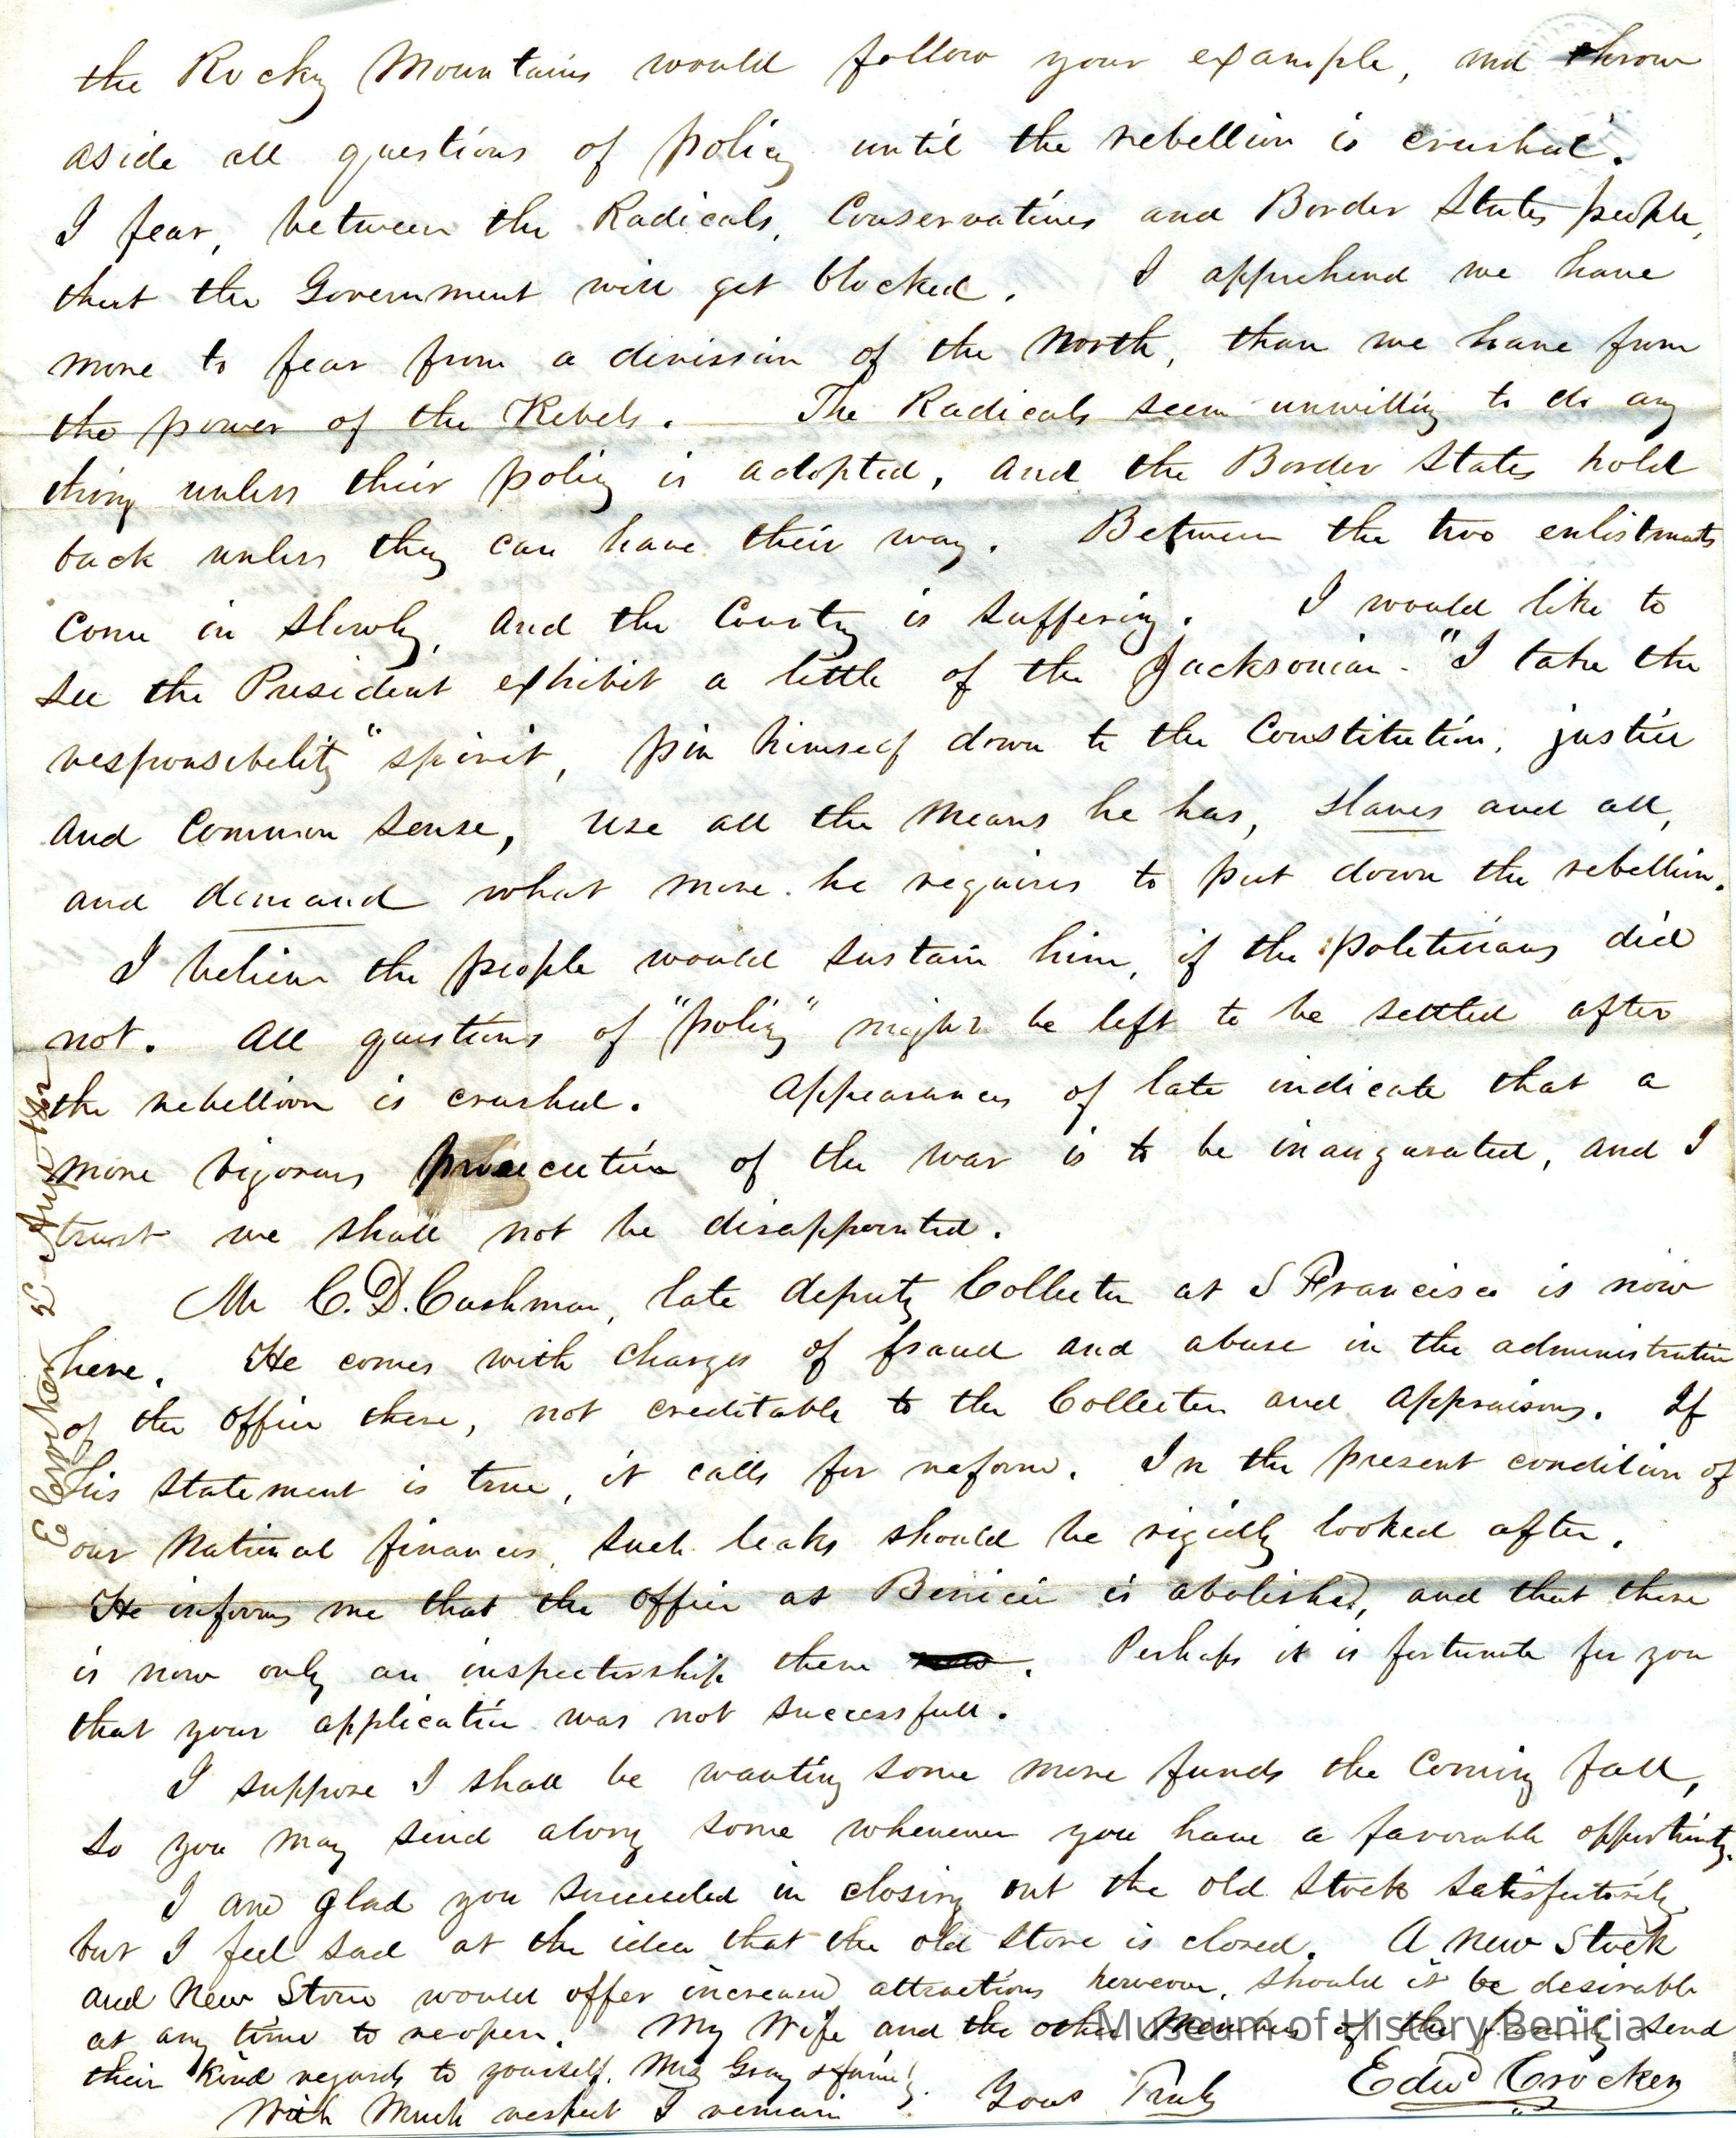 the Rocky Mountains would follow your example, and throw
aside all questions of policy until the rebellion is crushed.
I fear, between the Radicals, Conservatives and Border States people,
that the Government will get blocked. I apprehend we have
more to fear from a division of the North, than we have from
the power of the Rebels. The Radicals seem unwilling to do any
thing unless their policy is adopted, and the Border States hold
back unless they can have their way. Between the two enlistments
come in slowly, and the Country is suffering. I would like to
see the President exhibit a little of the Jacksonian - "I take the
responsibility" spirit, pin himself down to the Constitution, justice
and common sense, use all the means he has, slaves and all,
and demand what more he requires to put down the rebellion.
I believe the people would sustain him, if the politicians did
not. All questions of "policy" might be left to be settled after
the rebellion is crushed. Appearances of late indicate that a
more vigorous prosecution of the war is to be inaugurated, and I
trust we shall not be disappointed.
Mr C. D. Cushman, late deputy Collector at S Francisco is now
here. He comes with charges of fraud and abuse in the administration
of the office there, not creditable to the Collector and Appraisers. If
his statement is true, it calls for reform. In the present condition of
our National finances, such leaks should be rigidly looked after.
He informs me that the office at Benicia is abolished, and that there
is now only an inspectorship there now. Perhaps it is fortunate for you
that your application was not successfull.
I suppose I shall be wanting some more funds the coming fall,
so you may send along some whenever you have a favorable opportunity.
I am glad you succeeded in closing out the old stock satisfactorily
but I feel sad at the idea that the old store is closed. A new stock
and New Store would offer increased attractions however, should it be desirable
at any time to reopen. My Wife and the other Members of the family send
their kind regards to yourself, Mrs Gray & family.
With Much respect I remain Yours Truly Edwd Crocker
E Crocker Aug
Museum of History Benicia